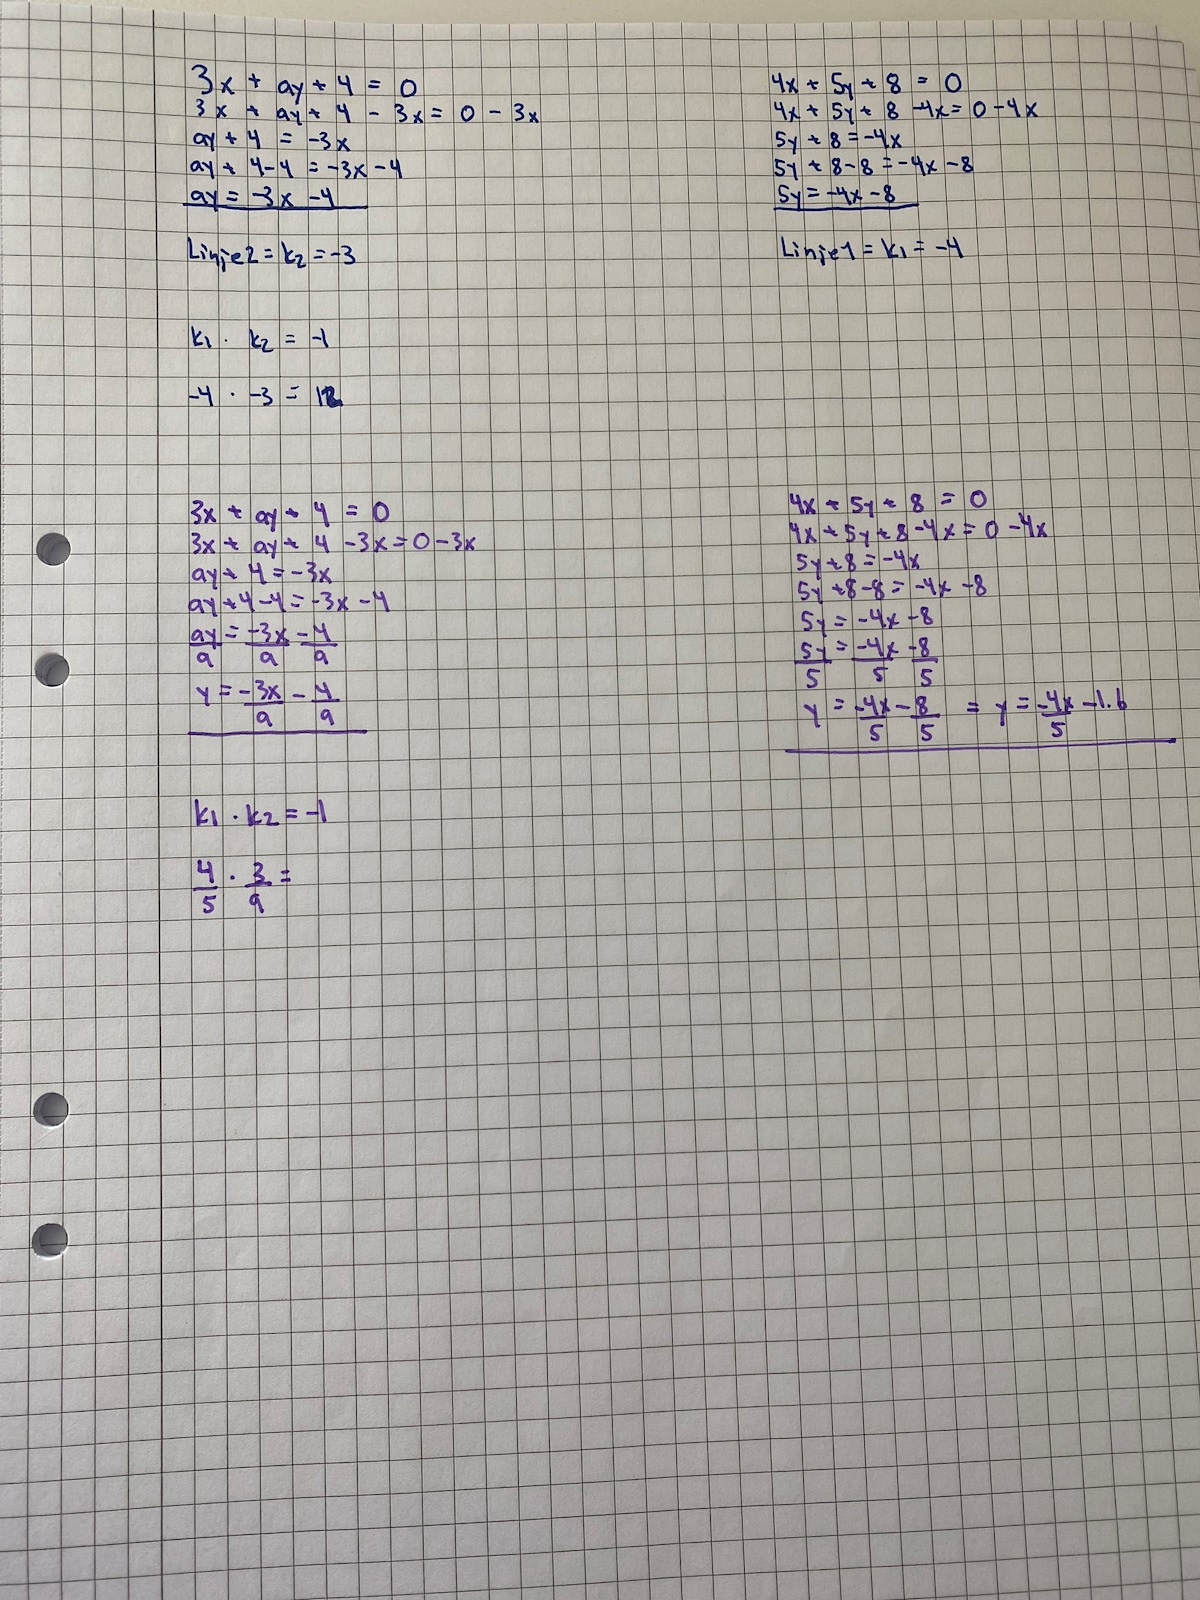 3x + ay + 4 = 0
3x + ay + 4 - 3x = 0 - 3x
ay + 4 = -3x
ay + 4-4 = -3x -4
ay = -3x -4
Linje2 = k2 = -3
k1 · k2 = -1
-4 · -3 = 12
4x + 5y + 8 = 0
4x + 5y + 8 -4x = 0 -4x
5y + 8 = -4x
5y + 8-8 = -4x -8
5y = -4x -8
Linje1 = k1 = -4
3x + ay + 4 = 0
3x + ay + 4 -3x = 0 -3x
ay + 4 = -3x
ay +4-4 = -3x -4
ay/a = -3x/a -4/a
y = -3x/a - 4/a
k1 · k2 = -1
4/5 · 3/a =
4x + 5y + 8 = 0
4x + 5y + 8 -4x = 0 -4x
5y+8 = -4x
5y +8-8 = -4x -8
5y = -4x -8
5y/5 = -4x/5 -8/5
y = -4x/5 - 8/5 = y = -4x/5 -1.6